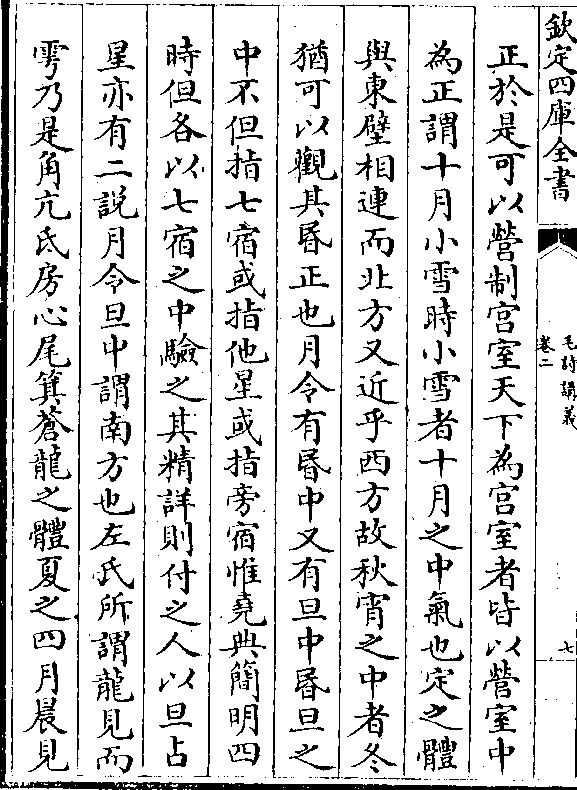 欽定四庫全書
毛詩講義
卷二
七
正於是可以營制宫室天下為宫室者皆以營室中
為正謂十月小雪時小雪者十月之中氣也定之體
與東壁相連而北方又近乎西方故秋宵之中者冬
猶可以觀其昏正也月令有昏中又有旦中昏旦之
中不但指七宿或指他星或指旁宿惟堯典簡明四
時但各以七宿之中驗之其精詳則付之人以旦占
星亦有二説月令旦中謂南方也左氏所謂龍見而
雩乃是角亢氐房心尾箕蒼龍之體夏之四月晨見